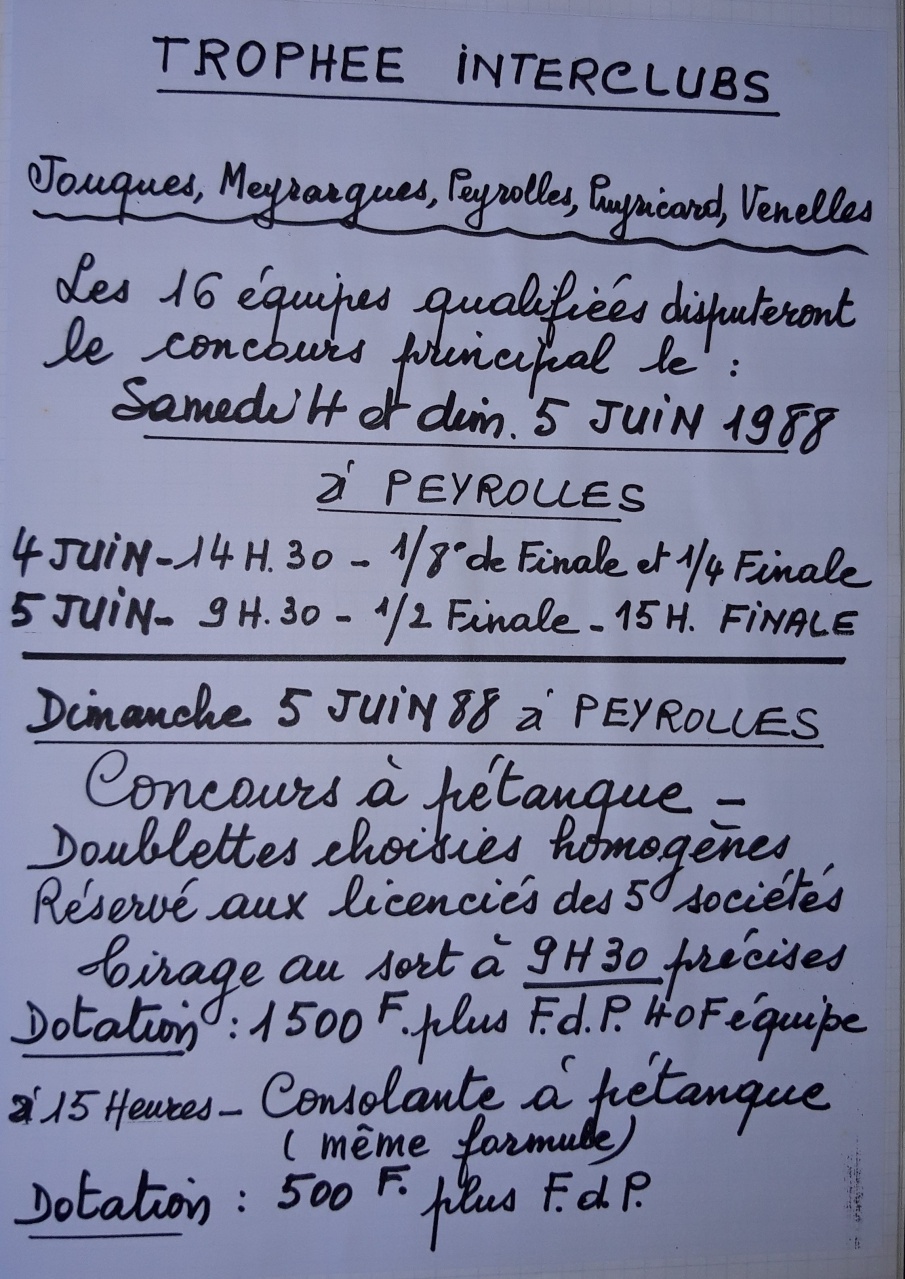 TROPHEE INTERCLUBS
Jouques, Meyrargues, Peyrolles, Puyricard, Venelles
Les 16 équipes qualifiées disputeront
le concours principal le :
Samedi 4 et dim. 5 JUIN 1988
à PEYROLLES
4 JUIN - 14 H. 30 - 1/8° de Finale et 1/4 Finale
5 JUIN - 9 H. 30 - 1/2 Finale - 15 H. FINALE
Dimanche 5 JUIN 88 à PEYROLLES
Concours à pétanque -
Doublettes choisies homogènes
Réservé aux licenciés des 5 sociétés
tirage au sort à 9 H 30 précises
Dotation : 1500 F. plus F.d.P. 40 F équipe
à 15 Heures - Consolante à pétanque
( même formule )
Dotation : 500 F. plus F.d.P.